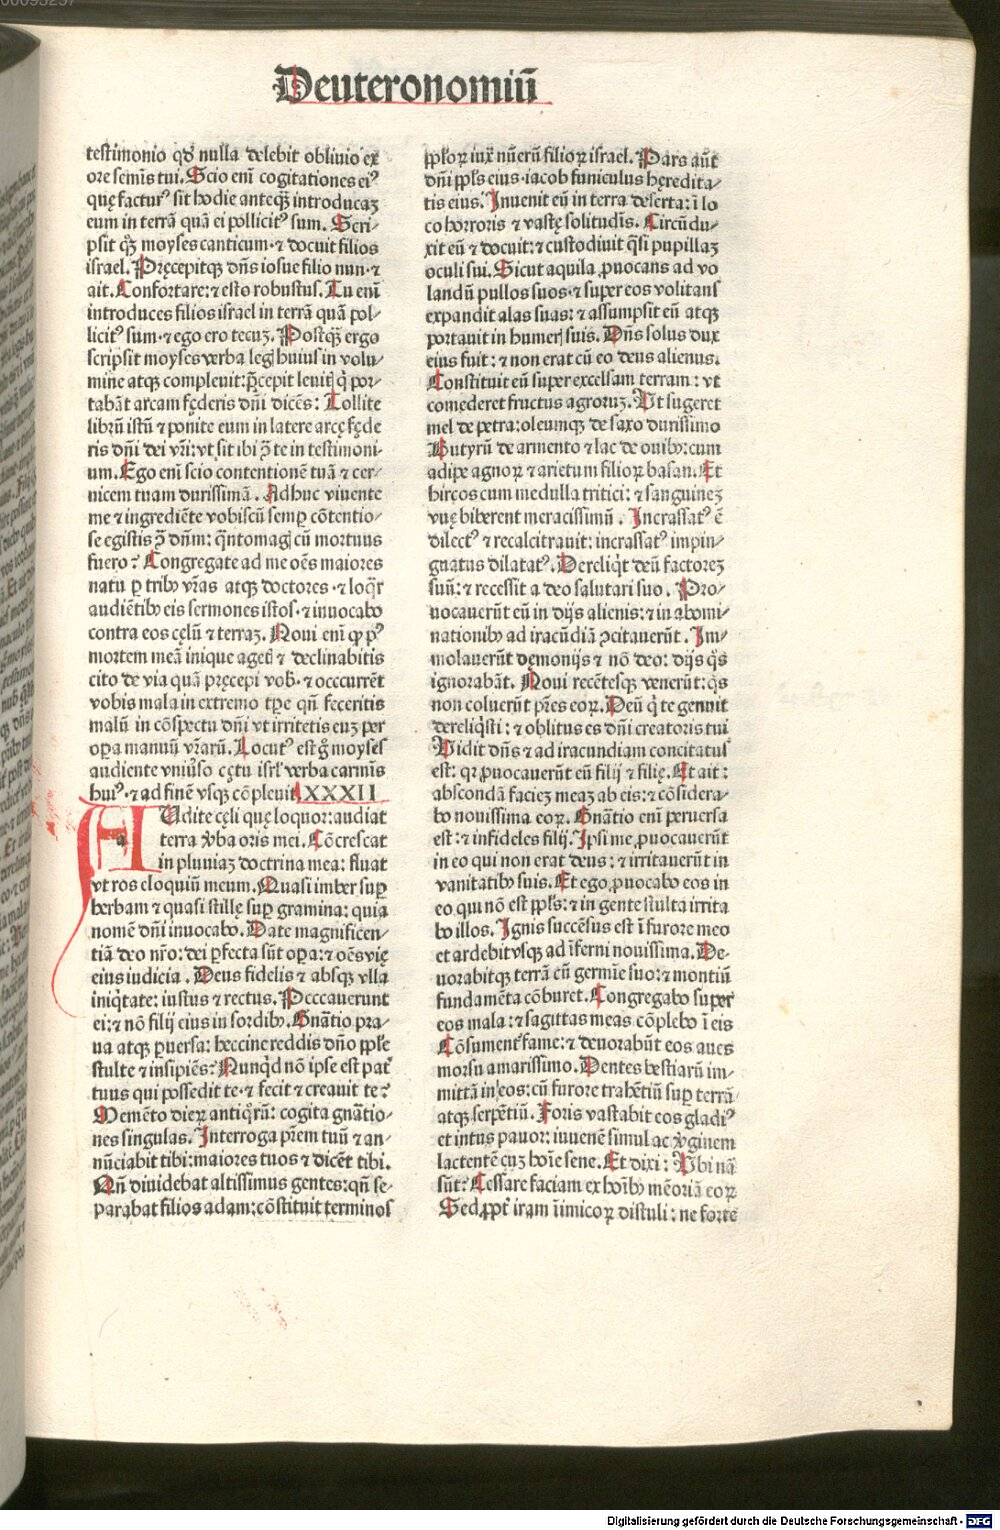 Deuteronomiū
testimonio qd' nulla delebit obliuio ex
ore seminis tui. Scio eni cogitationes eiꝰ
quę facturꝰ sit hodie anteq̄ȝ introducaȝ
eum in terrā quā ei pollicitꝰ sum. Scri-
psit qȝ moyses canticum· ⁊ docuit filios
israel. Pręcepitqȝ dn̄s iosue filio nun· ⁊
ait. Confortare: ⁊ esto robustus. Tu eni
introduces filios israel in terrā quā pol-
licitꝰ sum· ⁊ ego ero tecuȝ. Postq̄ȝ ergo
scripsit moyses verba legꝭ huius in volu-
mine atqȝ compleuit: p̄cepit leuitꝭ q̇ por-
tabāt arcam fęderis dn̄i dicēs: Tollite
librū istū ⁊ ponite eum in latere arcę fęde
ris dn̄i dei vr̄i: vt sit ibi ↄ̄ te in testimoni-
um. Ego eni scio contentionē tuā ⁊ cer-
uicem tuam durissimā. Adhuc viuente
me ⁊ ingrediēte vobiscū semꝑ cōtentio-
se egistis ↄ̄ dn̄m: q̄ntomagꝭ cū mortuus
fuero? Congregate ad me oēs maiores
natu ꝑ tribꝰ vr̄as atqȝ doctores· ⁊ loq̄r
audiētibꝰ eis sermones istos· ⁊ inuocabo
contra eos cęlū ⁊ terraȝ. Noui eni ꝙ pꝰ
mortem meā inique agetꝭ ⁊ declinabitis
cito de via quā pręcepi vob'· ⁊ occurrēt
vobis mala in extremo tꝑe qn̄ feceritis
malū in cōspectu dn̄i vt irritetis euȝ per
oꝑa manuū vr̄arū. Locutꝰ est gͦ moyses
audiente vniuꝭso cętu isrl' verba carmīs
huiꝰ· ⁊ ad finē vsqȝ cōpleuit. XXXII
AUdite cęli quę loquor: audiat
terra ꝟba oris mei. Cōcrescat
in pluuiaȝ doctrina mea: fluat
vt ros eloquiū meum. Quasi imber suꝑ
herbam ⁊ quasi stillę suꝑ gramina: quia
nomē dn̄i inuocabo. Date magnificen-
tiā deo nr̄o: dei ꝑfecta sūt oꝑa: ⁊ oēs vię
eius iudicia. Deus fidelis ⁊ absqȝ vlla
iniq̇tate: iustus ⁊ rectus. Peccauerunt
ei: ⁊ nō filij eius in sordibꝰ. Gnātio pra-
ua atqȝ ꝑuersa: heccine reddis dn̄o pp̄le
stulte ⁊ insipiēs? Nunqd nō ipse est pat̄
tuus qui possedit te· ⁊ fecit ⁊ creauit te?
Memēto dieꝝ antiq̄rū: cogita gnātio-
nes singulas. Interroga prēm tuū ⁊ an-
nūciabit tibi: maiores tuos ⁊ dicēt tibi.
Qn̄ diuidebat altissimus gentes: qn̄ se-
parabat filios adam: cōstituit terminos
pp̄loꝝ iux̄ nūerū filioꝝ israel. Pars aūt
dn̄i pp̄ls eius· iacob funiculus hęredita-
tis eius. Inuenit eū in terra deserta: ī lo
co horroris ⁊ vastę solitudīs. Circūdu-
xit eū ⁊ docuit: ⁊ custodiuit q̄si pupillaȝ
oculi sui. Sicut aquila ꝓuocans ad vo
landū pullos suos· ⁊ super eos volitans
expandit alas suas: ⁊ assumpsit eū atqȝ
portauit in humerꝭ suis. Dn̄s solus dux
eius fuit: ⁊ non erat cū eo deus alienus.
Constituit eū super excelsam terram: vt
comederet fructus agroruȝ. Ut sugeret
mel de petra: oleumqȝ de saxo durissimo
Butyrū de armento ⁊ lac de ouibꝰ: cum
adipe agnoꝝ ⁊ arietum filioꝝ basan. Et
hircos cum medulla tritici: ⁊ sanguineȝ
vuę biberent meracissimū. Incrassatꝰ ē
dilectꝰ ⁊ recalcitrauit: incrassatꝰ impin-
guatus dilatatꝰ. Dereliq̇t deū factoreȝ
suū: ⁊ recessit a deo salutari suo. Pro-
uocauerūt eū in dijs alienis: ⁊ in abomi-
nationibꝰ ad iracūdiā ↄcitauerūt. Im-
molauerūt dęmonijs ⁊ nō deo: dijs q̇s
ignorabāt. Noui recētesqȝ venerūt: q̇s
non coluerūt prēs eoꝝ. Deū q̇ te genuit
dereliq̇sti: ⁊ oblitus es dn̄i creatoris tui
Vidit dn̄s ⁊ ad iracundiam concitatus
est: qꝛ ꝓuocauerūt eū filij ⁊ filię. Et ait:
abscondā facieȝ meaȝ ab eis: ⁊ cōsidera-
bo nouissima eoꝝ. Gnātio eni peruersa
est: ⁊ infideles filij. Ipsi me ꝓuocauerūt
in eo qui non erat deus: ⁊ irritauerūt in
vanitatibꝰ suis. Et ego ꝓuocabo eos in
eo qui nō est pp̄ls: ⁊ in gente stulta irrita
bo illos. Ignis succēsus est ī furore meo
et ardebit vsqȝ ad īferni nouissima. De-
uorabitqȝ terrā cū germīe suo: ⁊ montiū
fundamēta cōburet. Congregabo super
eos mala: ⁊ sagittas meas cōplebo ī eis
Cōsument̄ fame: ⁊ deuorabūt eos aues
morsu amarissimo. Dentes bestiarū im-
mittā in eos: cū furore trahētiū suꝑ terrā
atqȝ serpētiū. Foris vastabit eos gladiꝰ
et intus pauor: iuuenē simul ac ꝟginem
lactentē cuȝ hoīe sene. Et dixi: Ubi nā
sūt? Cessare faciam ex hoībꝰ mēoriā eoꝝ
Sed ꝓpt̄ iram īimicoꝝ distuli: ne forte
Digitalisierung gefördert durch die Deutsche Forschungsgemeinschaft - DFG